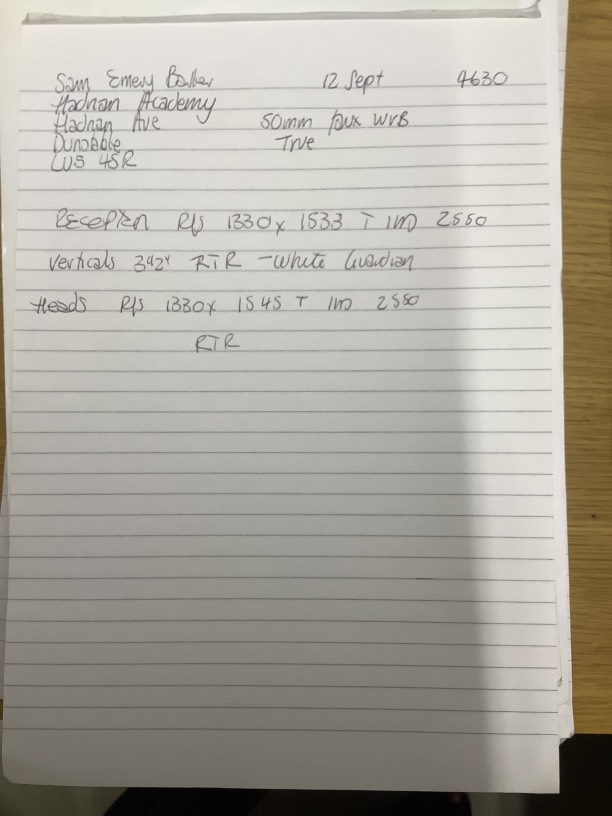 Sam Emery Barker 12 Sept 4630
Hadrian Academy
Hadrian Ave 50mm faux WVB
Dunstable True
LU5 4SR
Reception R/S 1330 x 1533 T 1m 2550
Verticals 3½" RTR - White Guardian
Heads R/S 1330 x 1545 T 1m 2550
RTR